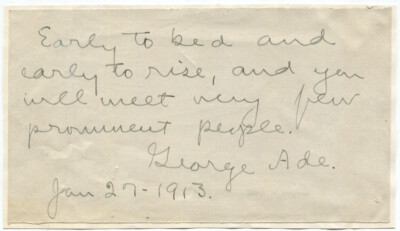 Early to bed and
early to rise, and you
will meet very few
prominent people.
George Ade.
Jan 27-1913.